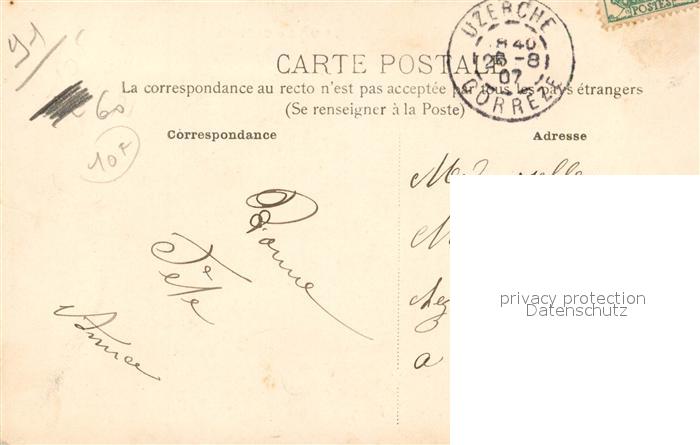 91/
60
10F
UZERCHE
8 40
25 -8
07
CORREZE
POSTES
CARTE POSTALE
La correspondance au recto n'est pas acceptée par tous les pays étrangers
(Se renseigner à la Poste)
Correspondance
Adresse
Bonne
Fête
M
a
privacy protection
Datenschutz